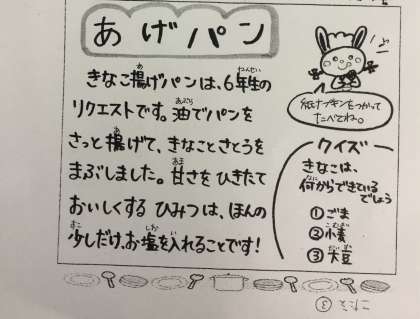 あげパン
きなこ揚げパンは、6年生の
リクエストです。油でパンを
さっと揚げて、きなことさとうを
まぶしました。甘さをひきたて
おいしくするひみつは、ほんの
少しだけ、お塩を入れることです!
紙ナプキンをつかって
たべてね。
クイズ
きなこは、
何からできている
でしょう
①ごま
②小麦
③大豆
③